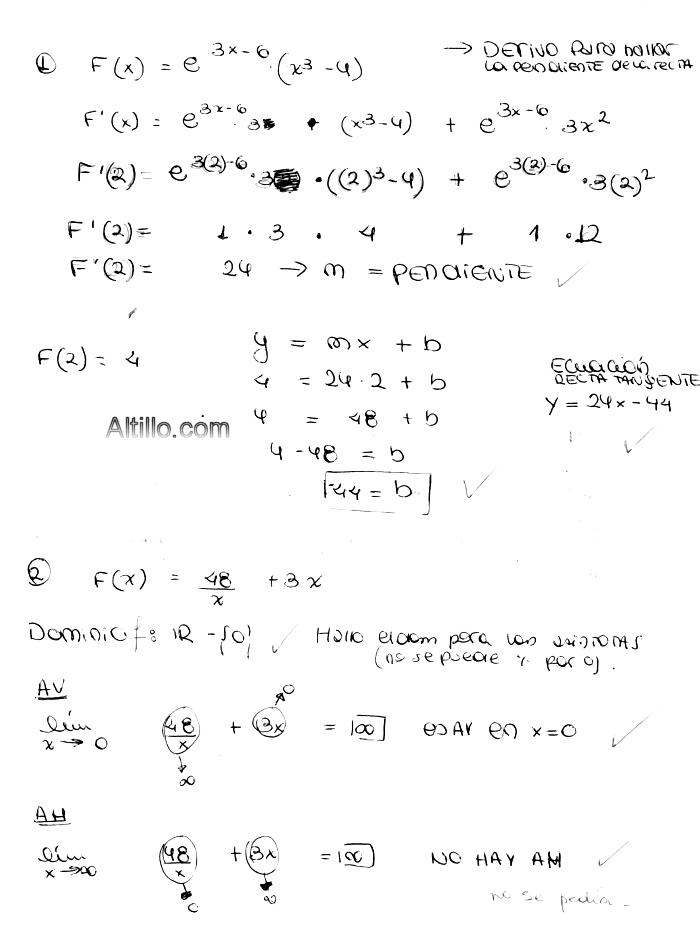 ① F(x) = e^(3x-6) · (x³-4) → DERIVO PARA HALLAR
LA PENDIENTE DE LA RECTA
F'(x) = e^(3x-6) · 3 · (x³-4) + e^(3x-6) · 3x²
F'(2) = e^(3(2)-6) · 3 · ((2)³-4) + e^(3(2)-6) · 3(2)²
F'(2) = 1 · 3 · 4 + 1 · 12
F'(2) = 24 → m = PENDIENTE ✓
F(2) = 4
y = mx + b
4 = 24·2 + b
4 = 48 + b
4 - 48 = b
-44 = b ✓
ECUACIÓN
RECTA TANGENTE
Y = 24x - 44
✓
Altillo.com
② F(x) = 48/x + 3x
Dominio f: IR - {0} ✓ Hallo el dom para las
(no se puede % por 0).
AV
lím x→0 48/x + 3x = ∞ es AV en x=0 ✓
0
∞
AH
lím x→∞ 48/x + 3x = ∞ NO HAY AH ✓
0 ∞
no se pedía.